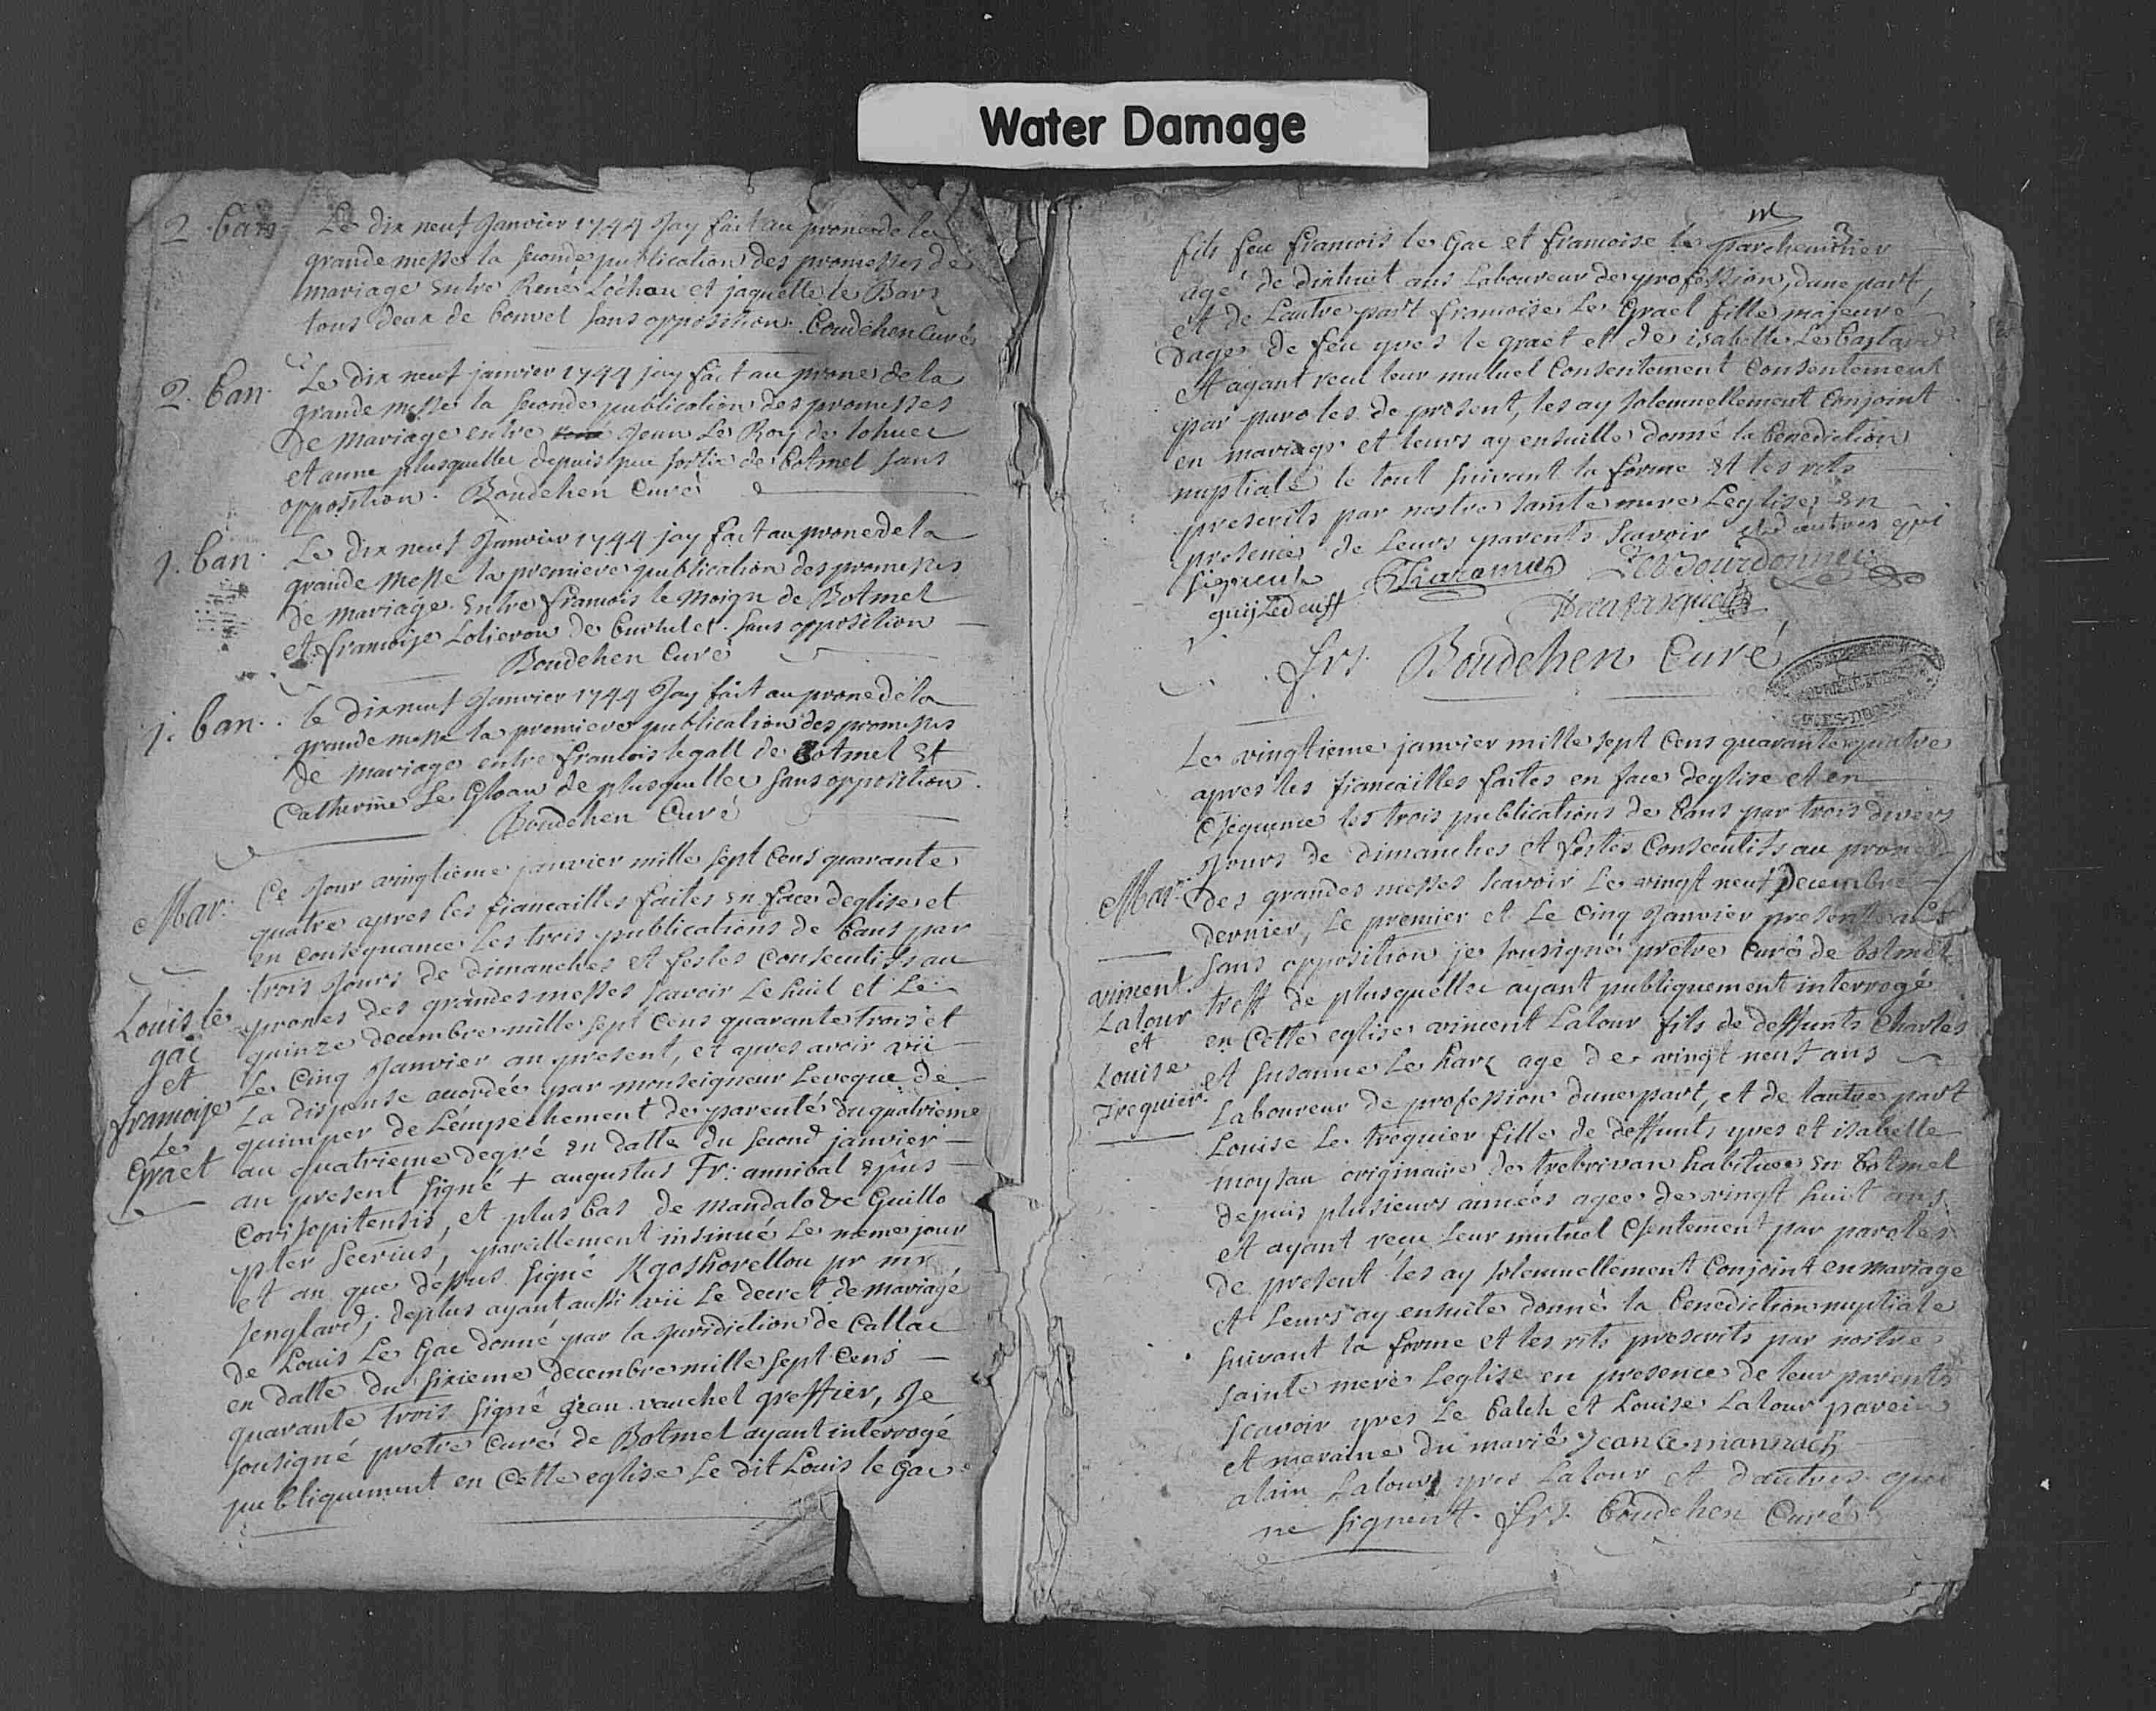 Water Damage
2 bans
Le dix neuf Janvier 1744 Jay fait au prone de la
grande messe la seconde publication des promesses de
mariage Entre René Lochou et jaquette le Bars
tous deux de bonvel sans opposition. Coudehen Curé
2. ban.
Le dix neuf janvier 1744 jay fait au prone de la
grande messe la seconde publication des promesses
De mariage entre Jean Le Roy de lohuec
et anne plusquellec depuis peu sortie de botmel sans
opposition. Boudehen Curé
1. ban.
Le dix neuf Janvier 1744 jay fait au prone de la
grande messe la premiere publication des promesses
de mariage. Entre francois le Moign de Botmel
et francoise Lolierou de burtulet. sans opposition
Boudehen Curé
1. ban.
le dix neuf Janvier 1744 Jay fait au prone de la
grande messe la premiere publication des promesses
de mariage entre francois le gall de botmel Et
Catherine Le Gloan de plusquellec sans opposition.
Boudehen Curé
Mar:
Louis le
gac
et
francoise
Le
Graet
Ce Jour vingtieme janvier mille sept cens quarante
quatre apres les fiancailles faites en face deglise et
en consequance les trois publications de bans par
trois Jours de dimanches et festes consecutifs au
prones des grandes messes scavoir Le huit et Le
quinze decembre mille sept cens quarante trois et
Le cinq Janvier an present, et apres avoir vii
La dispense accordée par monseigneur Leveque de
quimper de Lémpechement de parenté du quatrieme
au quatrieme degré en datte du second janvier
an present signé + augustus Fr: annibal Epūs
Corisopitensis, et plus bas de mandato De Guillo
pter secrius, pareillement insinué Le meme jour
et an que dessus signé Kgoshorellou pr mr
senglard; deplus ayant aussi vii Le decret de mariage
de Louis Le Gac donné par la Juridiction de Callac
en datte du sixieme decembre mille sept cens
quarante trois signé jean vauchel greffier, Je
sousigné pretre Curé de Botmel ayant interrogé
publiquement en Cette eglise Le dit Louis le Gac
fils feu francois le Gac et francoise le parcheminier
agé de dixhuit ans Laboureur de profession, dune part,
et de Lautre part francoise Le Grael fille majeure
Dage de feu yves le graet et de isabelle Le bastard
Et ayant receu leur mutuel Consentement Consentement
par paroles de present, les ay solemnellement conjoint
en mariage et leurs ay ensuitte donné la benediction
nuptiale le tout suivant la forme et les rits
prescrits par nostre sainte mere Leglise en
presence de Leurs parents Scavoir et dautres qui
signent
guy Ledeuff
Frs. Boudehen Curé
Mar.
vincent
Latour
et
Louise
Trequier.
Le vingtieme janvier mille sept cens quarante quatre
apres les fiancailles faites en face deglise et en
Csequence les trois publications de bans par trois divers
Jours de dimanches et festes Consecutifs au prone
des grandes messes scavoir Le vingt neuf Decembre
dernier, Le premier et Le cinq Janvier present
sans opposition je sousigné pretre Curé de botmel
treff de plusquellec ayant publiquement interrogé
en Cette eglise vincent Latour fils de deffunts Charles
et susanne Le hars age de vingt neuf ans
Laboureur de profession dune part, et de lautre part
Louise Le trequier fille de deffunts yves et isabelle
moysan originaire de trebrivan habituee en botmel
depuis plusieurs annees agee de vingt huit ans
et ayant receu leur mutuel Csentement par paroles
de present les ay solemnellement Conjoint en mariage
et Leurs ay ensuite donné la benediction nuptiale
suivant la forme et les rits prescrits par nostre
sainte mere Leglise en presence de leur parents
scavoir yves Le balch et Louise Latour parein
et maraine du marié Jean le mannach
alain Latour yves Latour et dautres qui
ne signent. Frs. Boudehen Curé